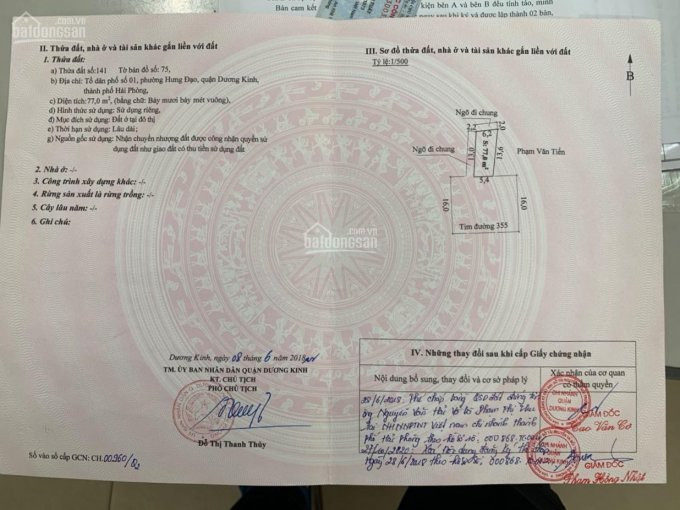 Bản cam kết
kiện bên A và bên B đều tỉnh táo, minh
sau khi ký và được lập thành 02 bản,
II. Thửa đất, nhà ở và tài sản khác gắn liền với đất
1. Thửa đất:
a) Thửa đất số:141 Tờ bản đồ số: 75,
b) Địa chỉ: Tổ dân phố số 01, phường Hưng Đạo, quận Dương Kinh,
thành phố Hải Phòng,
c) Diện tích: 77,0 m², (bằng chữ: Bảy mươi bảy mét vuông),
d) Hình thức sử dụng: Sử dụng riêng,
đ) Mục đích sử dụng: Đất ở tại đô thị
e) Thời hạn sử dụng: Lâu dài;
g) Nguồn gốc sử dụng: Nhận chuyển nhượng đất được công nhận quyền sử
dụng đất như giao đất có thu tiền sử dụng đất
2. Nhà ở: -/-
3. Công trình xây dựng khác: -/-
4. Rừng sản xuất là rừng trồng: -/-
5. Cây lâu năm: -/-
6. Ghi chú:
III. Sơ đồ thửa đất, nhà ở và tài sản khác gắn liền với đất
Tỷ lệ: 1/500
B
Ngõ đi chung
2,2
2,0
6,2
Ngõ đi chung
13,0
S: 77,0 m²
13,6
Phạm Văn Tiến
5,4
16,0
16,0
Tim đường 355
batdongsan
.com.vn
Dương Kinh, ngày 08 tháng 6 năm 2018
TM. ỦY BAN NHÂN DÂN QUẬN DƯƠNG KINH
KT. CHỦ TỊCH
PHÓ CHỦ TỊCH
Đỗ Thị Thanh Thủy
Số vào sổ cấp GCN: CH.00960/
IV. Những thay đổi sau khi cấp Giấy chứng nhận
Nội dung bổ sung, thay đổi và cơ sở pháp lý
Xác nhận của cơ quan
có thẩm quyền
/6/2018 Thế chấp bằng
CHI NHÁNH
QUẬN
DƯƠNG KINH
GIÁM ĐỐC
Cao Văn Cơ
ngày 28/6/2018 theo hồ sơ số
GIÁM ĐỐC
Phạm Hồng Nhật